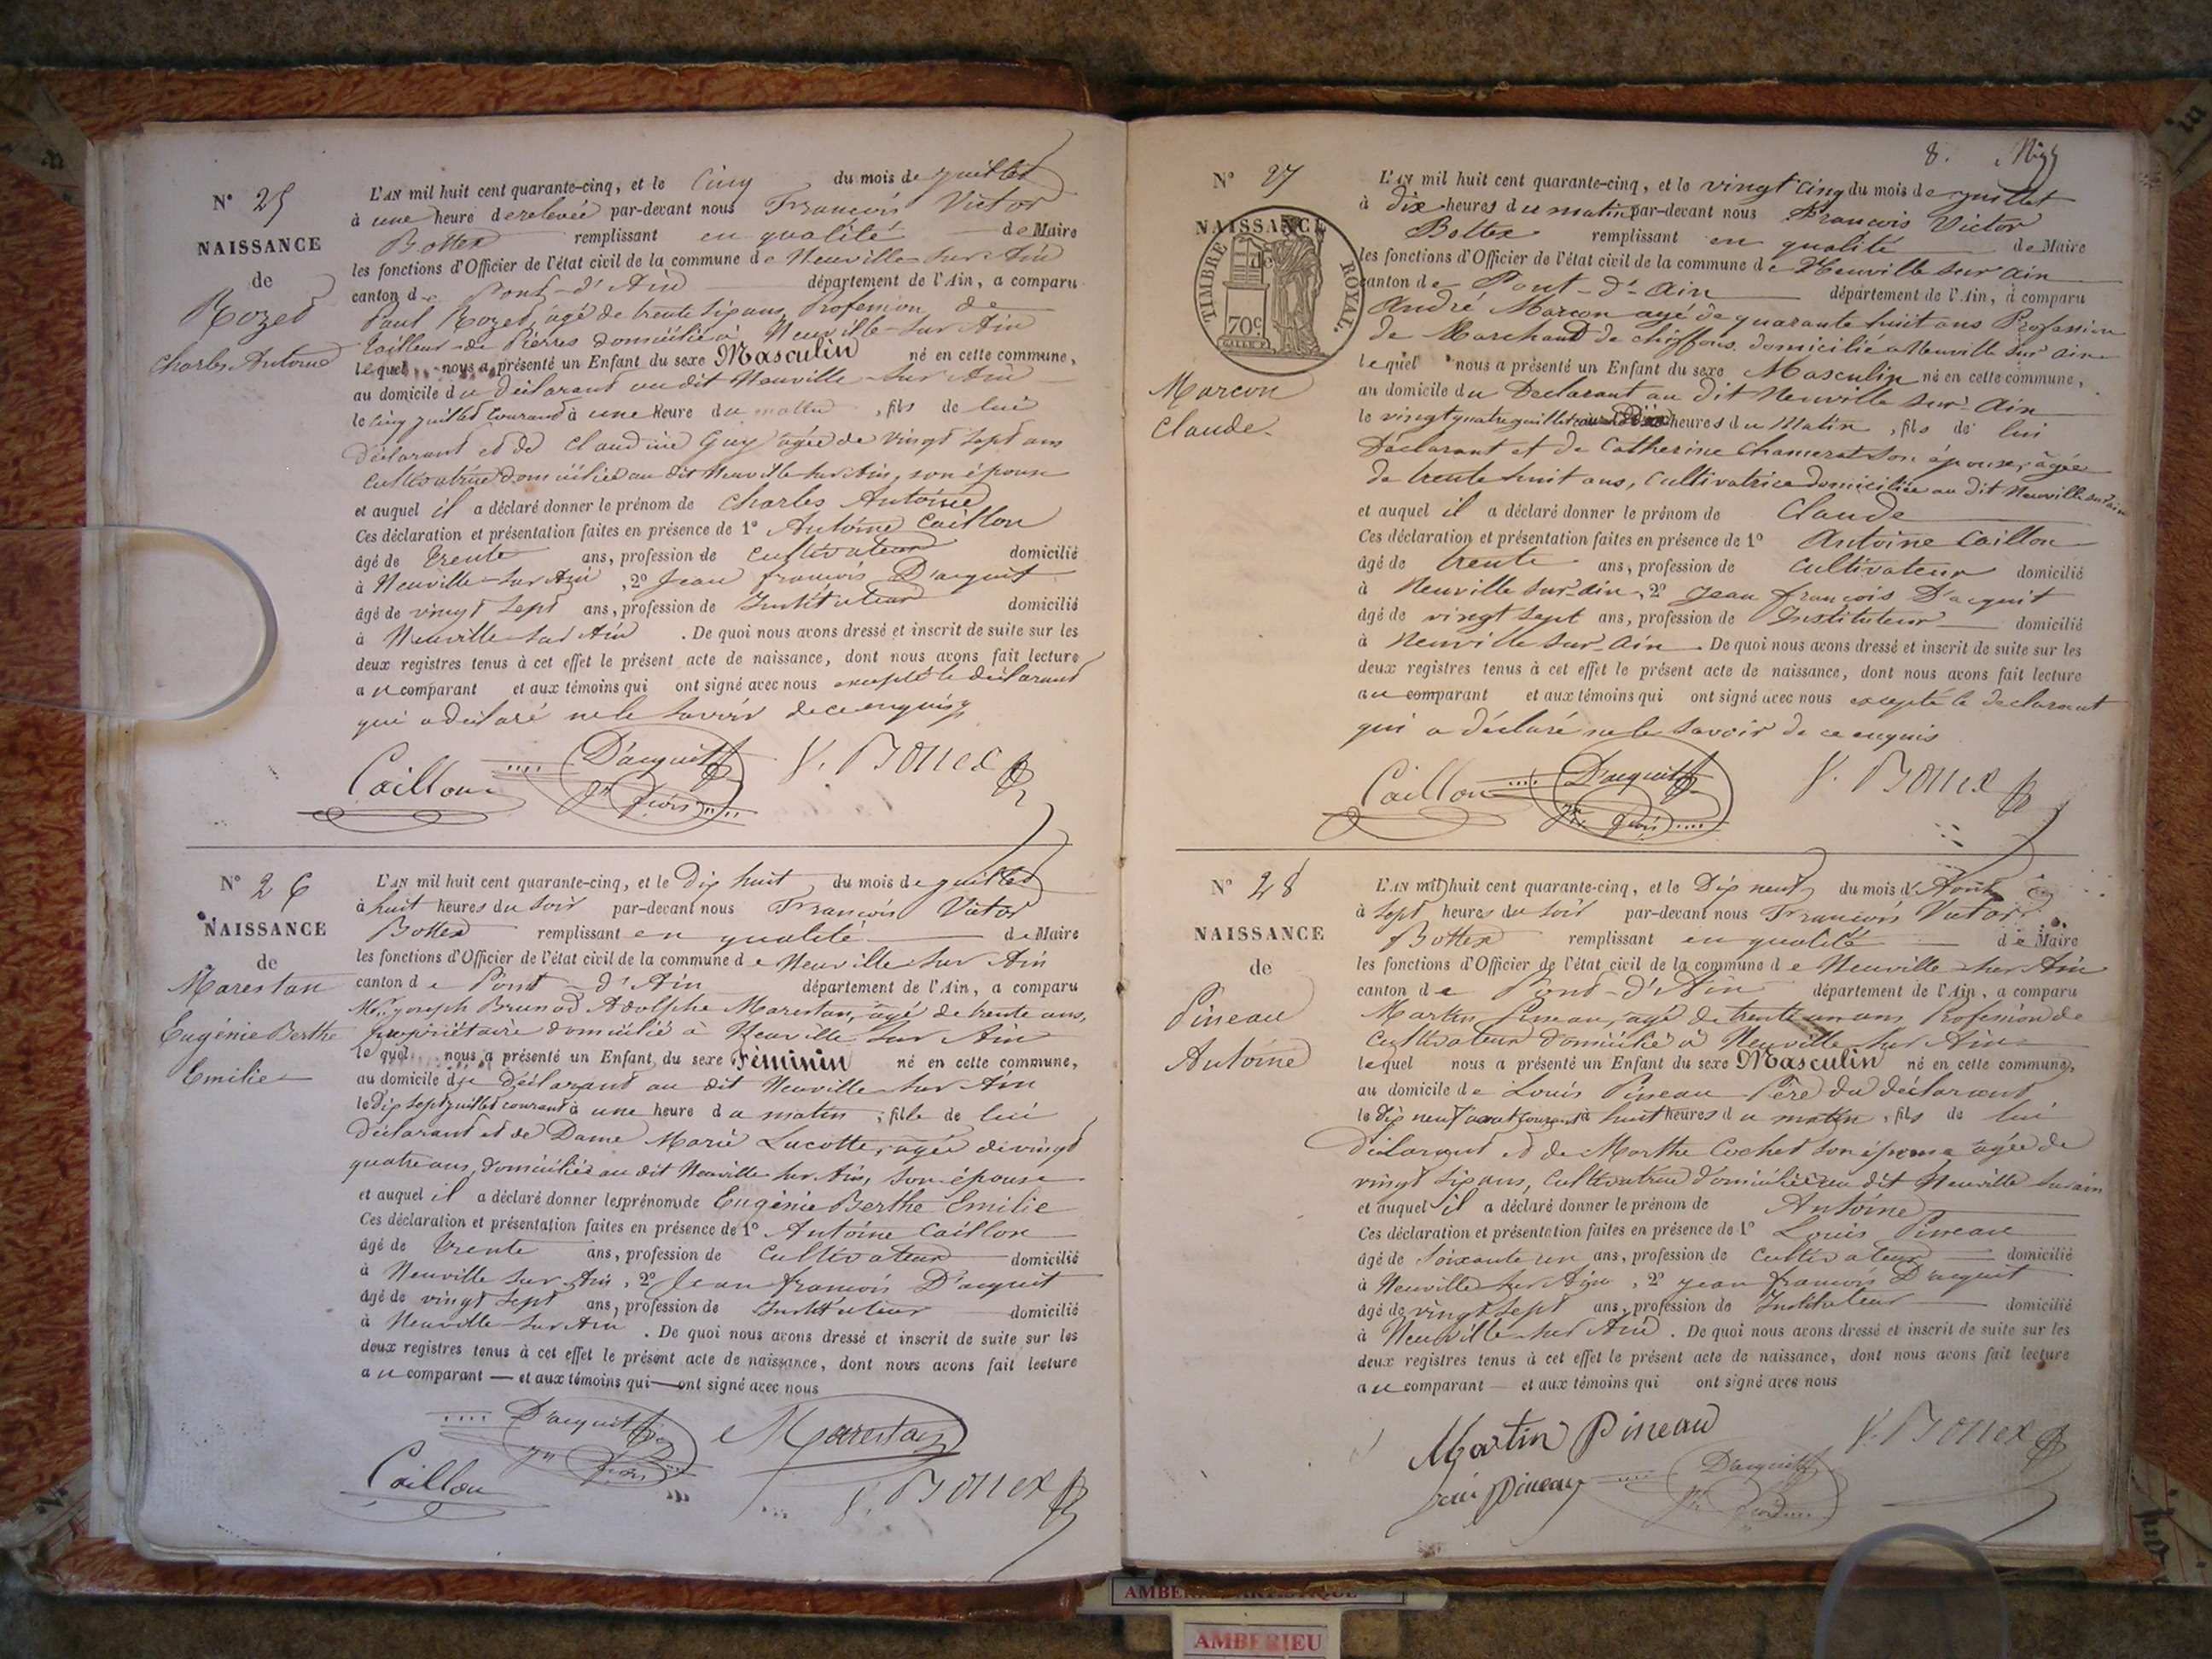 N° 25
NAISSANCE
de
Rozet
Charles Antoine
L'AN mil huit cent quarante-cinq, et le Cinq du mois de juillet
à une heure de relevée par-devant nous François Victor
Bottex remplissant en qualité de Maire
les fonctions d'Officier de l'état civil de la commune de Neuville-sur-Ain
canton de Pont-d'Ain département de l'Ain, a comparu
Paul Rozet, âgé de trente six ans Profession de
tailleur de Pierres domicilié à Neuville-sur-Ain
lequel nous a présenté un Enfant du sexe Masculin né en cette commune,
au domicile du déclarant au dit Neuville-sur-Ain
le cinq juillet courant à une heure du matin, fils de lui
déclarant et de Claudine Guy âgée de vingt sept ans
cultivatrice domiciliée au dit Neuville sur Ain, son épouse
et auquel il a déclaré donner le prénom de Charles Antoine
Ces déclaration et présentation faites en présence de 1° Antoine Caillon
âgé de trente ans, profession de cultivateur domicilié
à Neuville-sur-Ain, 2° Jean françois D'acquit
âgé de vingt sept ans, profession de Instituteur domicilié
à Neuville-sur-Ain. De quoi nous avons dressé et inscrit de suite sur les
deux registres tenus à cet effet le présent acte de naissance, dont nous avons fait lecture
au comparant et aux témoins qui ont signé avec nous excepté le déclarant
qui a déclaré ne le savoir de ce enquis
Caillon D'acquit V. Bottex
Jn Fçois
N° 26
NAISSANCE
de
Marestan
Eugénie Berthe
Emilie
L'AN mil huit cent quarante-cinq, et le Dix huit du mois de juillet
à huit heures du soir par-devant nous François Victor
Bottex remplissant en qualité de Maire
les fonctions d'Officier de l'état civil de la commune de Neuville sur Ain
canton de Pont-d'Ain département de l'Ain, a comparu
Mr. joseph Bruno Adolphe Marestan, âgé de trente ans,
propriétaire domicilié à Neuville sur Ain
lequel nous a présenté un Enfant du sexe Féminin né en cette commune,
au domicile du Déclarant au dit Neuville sur Ain
le dix sept juillet courant à une heure du matin, fille de lui
déclarant et de Dame Marie Lucotte, âgée de vingt
quatre ans, domiciliée au dit Neuville sur Ain, son épouse
et auquel il a déclaré donner les prénoms de Eugénie Berthe Emilie
Ces déclaration et présentation faites en présence de 1° Antoine Caillon
âgé de trente ans, profession de cultivateur domicilié
à Neuville sur Ain, 2° Jean françois D'acquit
âgé de vingt sept ans, profession de Instituteur domicilié
à Neuville-sur Ain. De quoi nous avons dressé et inscrit de suite sur les
deux registres tenus à cet effet le présent acte de naissance, dont nous avons fait lecture
au comparant — et aux témoins qui — ont signé avec nous
D'acquit Marestan
Jn Fçois
Caillon V. Bottex
8.
N° 27
NAISSANCE
de
TIMBRE ROYAL.
70c
Marcon
Claude
L'AN mil huit cent quarante-cinq, et le vingt cinq du mois de juillet
à dix heures du matin par-devant nous François Victor
Bottex remplissant en qualité de Maire
les fonctions d'Officier de l'état civil de la commune de Neuville sur ain
canton de Pont-d'-ain département de l'Ain, a comparu
André Marcon agé de quarante huit ans Profession
de Marchand de chiffons domicilié a Neuville sur ain
lequel nous a présenté un Enfant du sexe Masculin né en cette commune,
au domicile du Declarant au dit Neuville sur-ain
le vingt quatre juillet courant à heures du Matin, fils de lui
Déclarant et de Catherine Chamerat son épouse, âgée
de trente huit ans, cultivatrice domiciliée au dit Neuville sur ain
et auquel il a déclaré donner le prénom de Claude
Ces déclaration et présentation faites en présence de 1° Antoine Caillon
âgé de trente ans, profession de cultivateur domicilié
à Neuville sur-ain, 2° Jean françois D'acquit
âgé de vingt sept ans, profession de Instituteur domicilié
à Neuville sur-ain. De quoi nous avons dressé et inscrit de suite sur les
deux registres tenus à cet effet le présent acte de naissance, dont nous avons fait lecture
au comparant et aux témoins qui ont signé avec nous excepté le declarant
qui a déclaré ne le savoir de ce enquis
Caillon D'acquit V. Bottex
Jn Fçois
N° 28
NAISSANCE
de
Pineau
Antoine
L'AN mil huit cent quarante-cinq, et le Dix neuf du mois d'Août
à sept heures du soir par-devant nous François Victor
Bottex remplissant en qualité de Maire
les fonctions d'Officier de l'état civil de la commune de Neuville-sur Ain
canton de Pont-d'Ain département de l'Ain, a comparu
Martin Pineau, agé de trente un ans Profession de
cultivateur domicilié à Neuville sur Ain
lequel nous a présenté un Enfant du sexe Masculin né en cette commune,
au domicile de Louis Pineau Père du déclarant
le dix neuf aout courant à huit heures du matin, fils de lui
Déclarant et de Marthe Cochet son épouse âgée de
vingt six ans, cultivatrice domiciliée au dit Neuville sur ain
et auquel il a déclaré donner le prénom de Antoine
Ces déclaration et présentation faites en présence de 1° Louis Pineau
âgé de soixante un ans, profession de cultivateur domicilié
à Neuville sur Ain, 2° jean françois D'acquit
âgé de vingt sept ans, profession de Instituteur domicilié
à Neuville sur Ain. De quoi nous avons dressé et inscrit de suite sur les
deux registres tenus à cet effet le présent acte de naissance, dont nous avons fait lecture
au comparant — et aux témoins qui ont signé avec nous
Martin Pineau V. Bottex
Pineau D'acquit
Jn
AMBERIEU